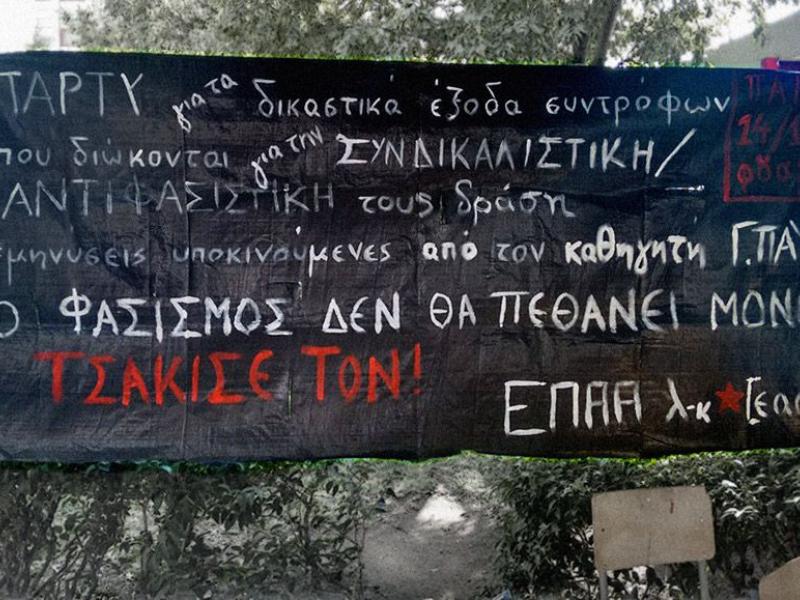 ΠΑΡΤΥ για τα δικαστικά έξοδα συντρόφων
που διώκονται για την ΣΥΝΔΙΚΑΛΙΣΤΙΚΗ/
ΑΝΤΙΦΑΣΙΣΤΙΚΗ τους δράση
μηνυσεις υποκινούμενες από τον καθηγητή Γ.ΠΑ
Ο ΦΑΣΙΣΜΟΣ ΔΕΝ ΘΑ ΠΕΘΑΝΕΙ ΜΟΝ
ΤΣΑΚΙΣΕ ΤΟΝ!
ΕΠΑΑ λ-κ★[εα
ΠΑ
14/1